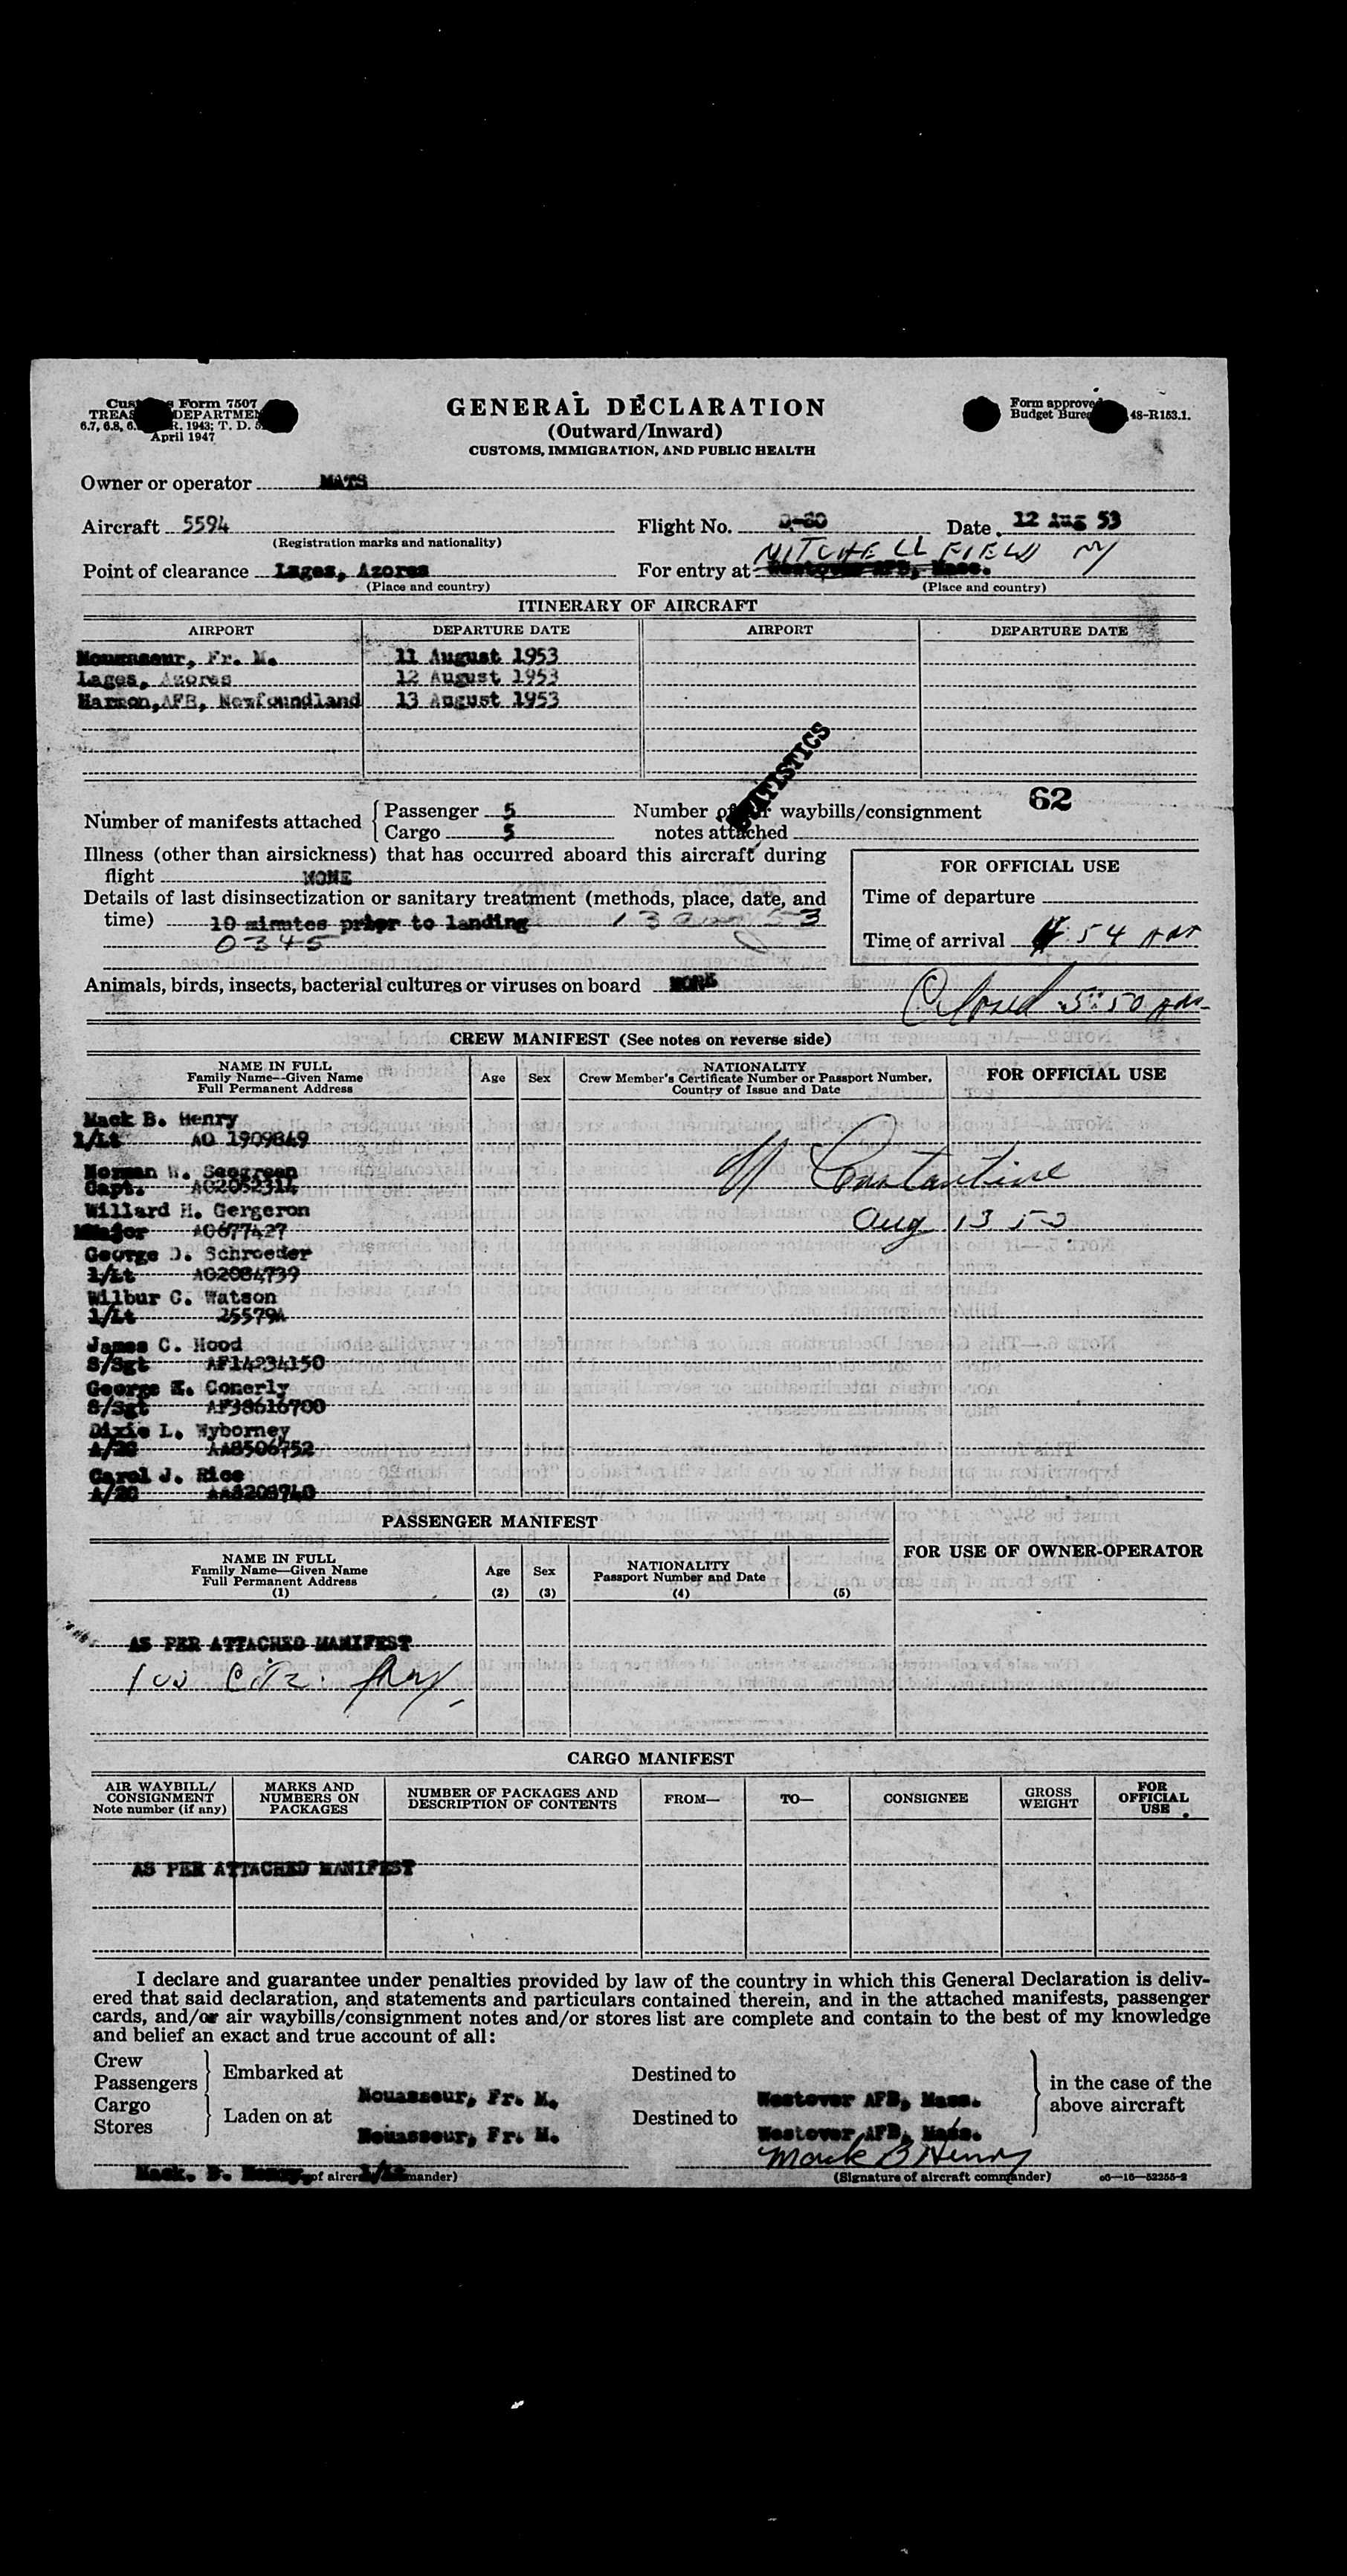 Customs Form 7507
TREASURY DEPARTMENT
6.7, 6.8, 6. R. 1943; T. D. 5
April 1947
GENERAL DECLARATION
(Outward/Inward)
CUSTOMS, IMMIGRATION, AND PUBLIC HEALTH
Form approved
Budget Bureau 48-R153.1.
Owner or operator MATS
Aircraft 5594 Flight No. D-80 Date 12 Aug 53
(Registration marks and nationality)
MITCHELL FIELD NY
Point of clearance Lages, Azores For entry at Westover AFB, Mass.
(Place and country) (Place and country)
ITINERARY OF AIRCRAFT
AIRPORT DEPARTURE DATE AIRPORT DEPARTURE DATE
Nouasseur, Fr. M. 11 August 1953
Lages, Azores 12 August 1953
Harmon, AFB, Newfoundland 13 August 1953
STATISTICS
62
Number of manifests attached Passenger 5 Number of air waybills/consignment
Cargo 5 notes attached
Illness (other than airsickness) that has occurred aboard this aircraft during
flight NONE
Details of last disinsectization or sanitary treatment (methods, place, date, and
time) 10 minutes prior to landing 13 aug 53
0345
FOR OFFICIAL USE
Time of departure
Time of arrival 54 AM
Animals, birds, insects, bacterial cultures or viruses on board NONE
Closed 5:50 AM
CREW MANIFEST (See notes on reverse side)
NAME IN FULL
Family Name—Given Name
Full Permanent Address
Age Sex
NATIONALITY
Crew Member's Certificate Number or Passport Number,
Country of Issue and Date
FOR OFFICIAL USE
Mack B. Henry
1/Lt AO 1909849
Norman W. Seegreen
Capt. AO2052314
Willard H. Gergeron
Major AO677427
George D. Schroeder
1/Lt AO2084739
Wilbur C. Watson
1/Lt 25579A
James C. Hood
S/Sgt AF14234150
George E. Conerly
S/Sgt AF38616700
Dixie L. Wyborney
A/2C AA8506752
Carol J. Rice
A/2C AA8208740
Constantine
Aug 13 53
PASSENGER MANIFEST
NAME IN FULL
Family Name—Given Name
Full Permanent Address
(1)
Age
(2)
Sex
(3)
NATIONALITY
Passport Number and Date
(4) (5)
FOR USE OF OWNER-OPERATOR
AS PER ATTACHED MANIFEST
CARGO MANIFEST
AIR WAYBILL/
CONSIGNMENT
Note number (if any)
MARKS AND
NUMBERS ON
PACKAGES
NUMBER OF PACKAGES AND
DESCRIPTION OF CONTENTS
FROM—
TO—
CONSIGNEE
GROSS
WEIGHT
FOR
OFFICIAL
USE
AS PER ATTACHED MANIFEST
I declare and guarantee under penalties provided by law of the country in which this General Declaration is deliv-
ered that said declaration, and statements and particulars contained therein, and in the attached manifests, passenger
cards, and/or air waybills/consignment notes and/or stores list are complete and contain to the best of my knowledge
and belief an exact and true account of all:
Crew
Passengers
Cargo
Stores
Embarked at Nouasseur, Fr. M.
Laden on at Nouasseur, Fr. M.
Destined to Westover AFB, Mass.
Destined to Westover AFB, Mass.
in the case of the
above aircraft
Mack B Henry
Mack. B. Henry, 1/Lt
(Signature of aircraft commander)
c6—16—52255-2